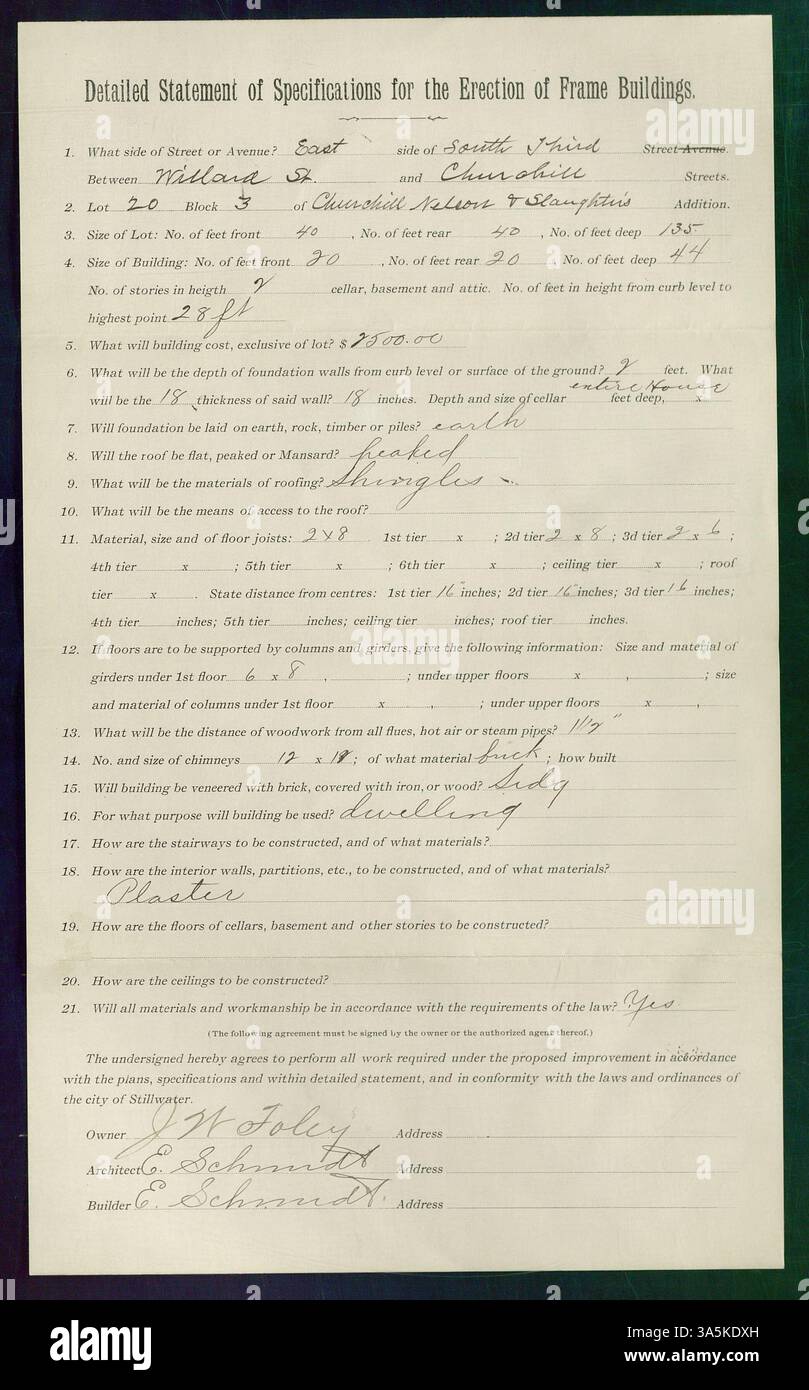 Detailed Statement of Specifications for the Erection of Frame Buildings.
1. What side of Street or Avenue? East side of South Third Street Avenue.
Between Willard St. and Churchill Streets.
2. Lot 20 Block 3 of Churchill Nelson & Slaughter's Addition.
3. Size of Lot: No. of feet front 40, No. of feet rear 40, No. of feet deep 135
4. Size of Building: No. of feet front 20, No. of feet rear 20 No. of feet deep 44
No. of stories in heigth 2 cellar, basement and attic. No. of feet in height from curb level to
highest point 28 ft
5. What will building cost, exclusive of lot? $ 2500.00
6. What will be the depth of foundation walls from curb level or surface of the ground? 2 feet. What
will be the 18 thickness of said wall? 18 inches. Depth and size of cellar entire House feet deep, x
7. Will foundation be laid on earth, rock, timber or piles? earth
8. Will the roof be flat, peaked or Mansard? peaked
9. What will be the materials of roofing? Shingles
10. What will be the means of access to the roof?
11. Material, size and of floor joists: 2x8 1st tier x ; 2d tier 2 x 8 ; 3d tier 2 x 6 ;
4th tier x ; 5th tier x ; 6th tier x ; ceiling tier x ; roof
tier x . State distance from centres: 1st tier 16" inches; 2d tier 16 inches; 3d tier 16 inches;
4th tier inches; 5th tier inches; ceiling tier inches; roof tier inches.
12. If floors are to be supported by columns and girders, give the following information: Size and material of
girders under 1st floor 6 x 8 , ; under upper floors x , ; size
and material of columns under 1st floor x , ; under upper floors x ,
13. What will be the distance of woodwork from all flues, hot air or steam pipes? 1 1/2"
14. No. and size of chimneys 12 x ; of what material brick ; how built
15. Will building be veneered with brick, covered with iron, or wood? Sidg
16. For what purpose will building be used? dwelling
17. How are the stairways to be constructed, and of what materials?
18. How are the interior walls, partitions, etc., to be constructed, and of what materials?
Plaster
19. How are the floors of cellars, basement and other stories to be constructed?
20. How are the ceilings to be constructed?
21. Will all materials and workmanship be in accordance with the requirements of the law? Yes
(The following agreement must be signed by the owner or the authorized agent thereof.)
The undersigned hereby agrees to perform all work required under the proposed improvement in accordance
with the plans, specifications and within detailed statement, and in conformity with the laws and ordinances of
the city of Stillwater.
Owner J W Foley Address
Architect E. Schmidt Address
Builder E. Schmidt. Address
alamy
Image ID: 3A5KDXH
www.alamy.com